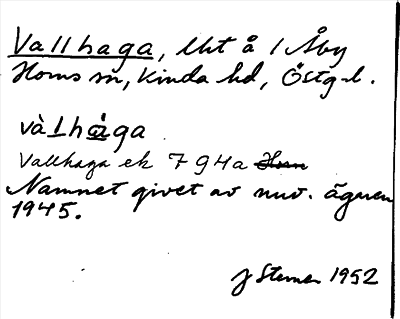 Vallhaga, lht å 1 Åby
Horns sn, Kinda hd, Östg-l.
và lhàga
Vallhaga ek 794a Horn
Namnet givet av nuv. ägaren
1945.
J Sterner 1952